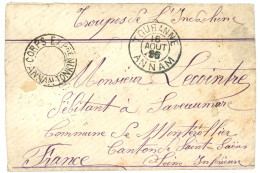 Troupes de l'Indochine
CORPS EXPRE
TOURANNE
16
AOUT
86
ANNAM
Monsieur Lecointre
Habitant à Saveaumare
Commune de Montérollier
Canton de Saint Saëns
France Seine Inférieure